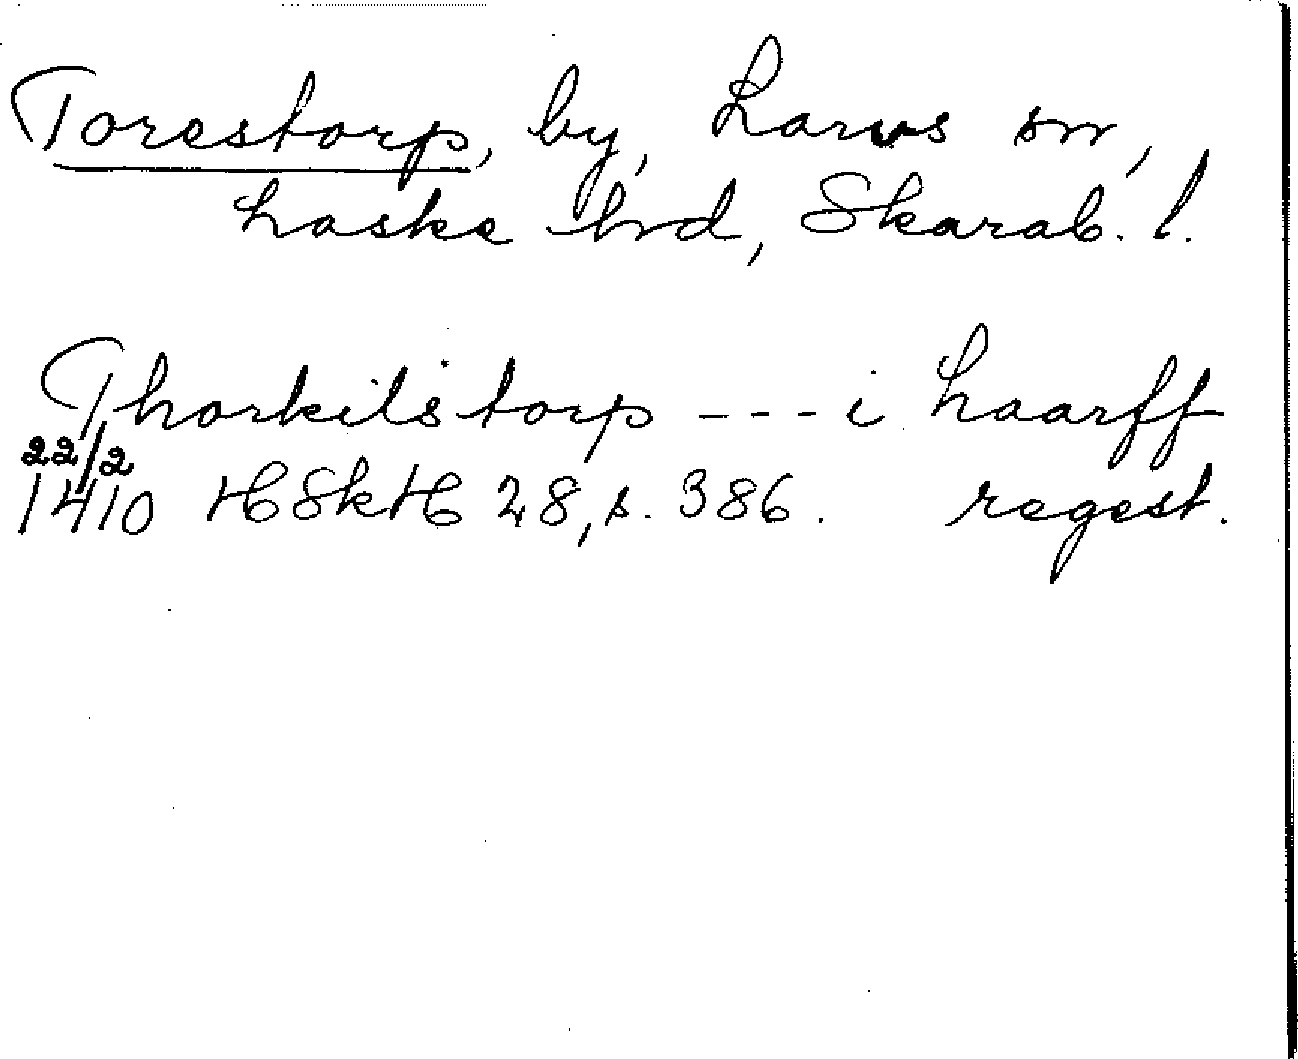 Torestorp, by, Larvs sn,
Laske hrd, Skarab. l.
Thorkilstorp --- i Laarff
22/2
1410 HSkH 28, s. 386. regest.